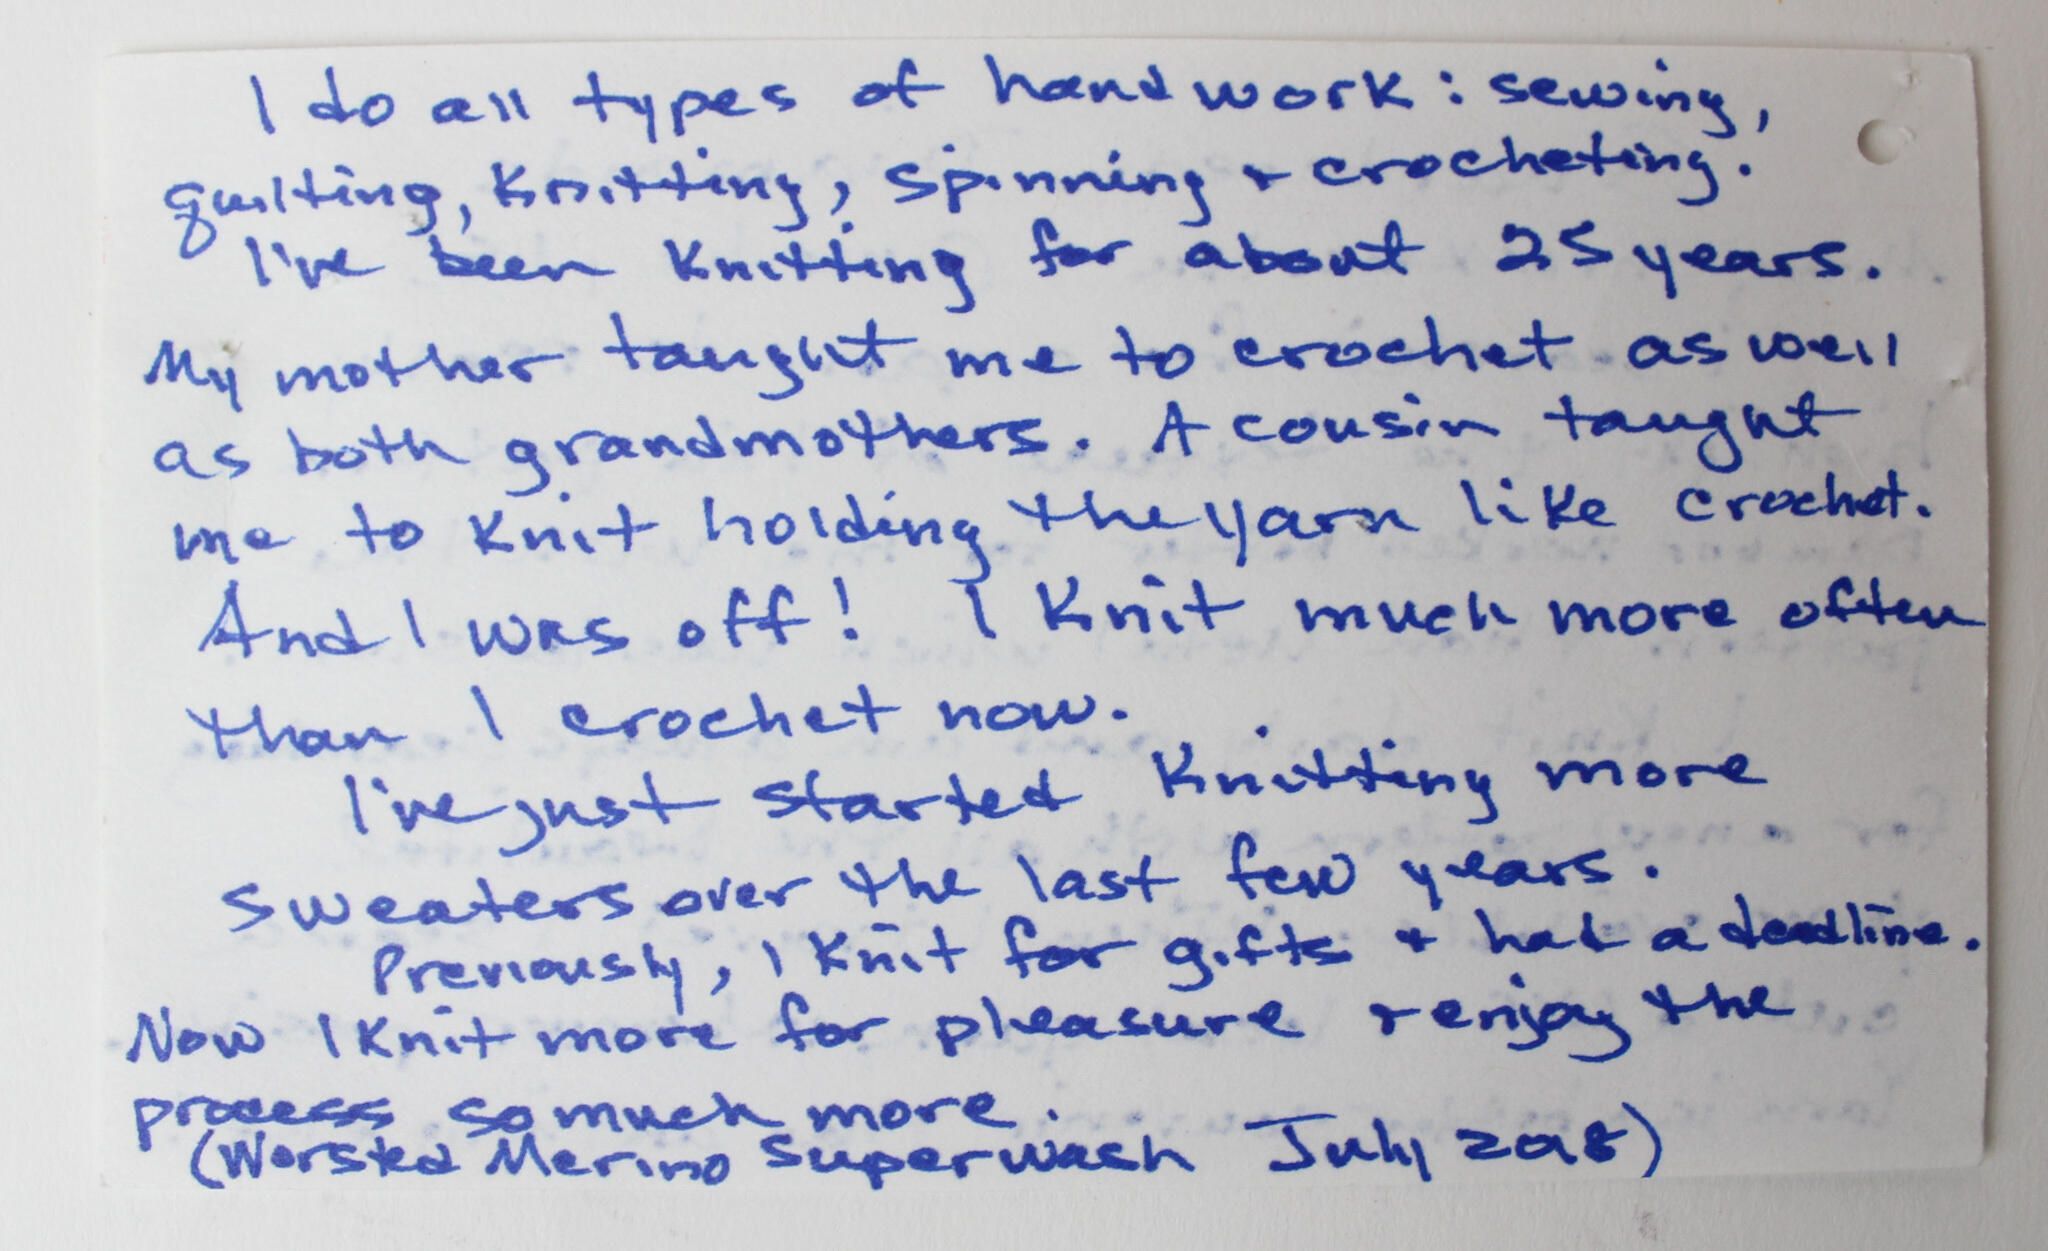 I do all types of handwork: sewing,
quilting, knitting, spinning + crocheting.
I've been knitting for about 25 years.
My mother taught me to crochet as well
as both grandmothers. A cousin taught
me to knit holding the yarn like crochet.
And I was off! I knit much more often
than I crochet now.
I've just started knitting more
sweaters over the last few years.
Previously, I knit for gifts + had a deadline.
Now I knit more for pleasure + enjoy the
process so much more.
(Worsted Merino Superwash July 2018)